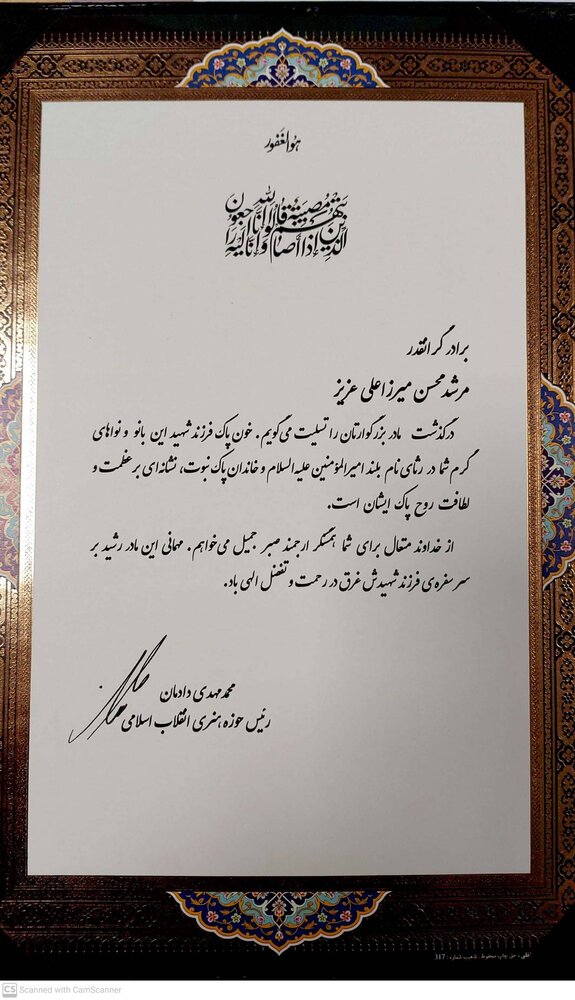 هوالغفور
الذین إذا أصابتهم مصیبة قالوا إنا لله وإنا إلیه راجعون
برادر گرانقدر
مرشد محسن میرزاعلی عزیز
درگذشت مادر بزرگوارتان را تسلیت می‌گویم. خون پاک فرزند شهید این بانو و نواهای
گرم شما در رثای نام بلند امیرالمؤمنین علیه‌السلام و خاندان پاک نبوت، نشانه‌ای بر عظمت و
لطافت روح پاک ایشان است.
از خداوند متعال برای شما همسنگر ارجمند صبر جمیل می‌خواهم. مهمانی این مادر رشید بر
سر سفره‌ی فرزند شهیدش غرق در رحمت و تفضل الهی باد.
محمدمهدی دادمان
رئیس حوزه هنری انقلاب اسلامی
حق چاپ محفوظ. تذهیب شماره: 317
CS Scanned with CamScanner